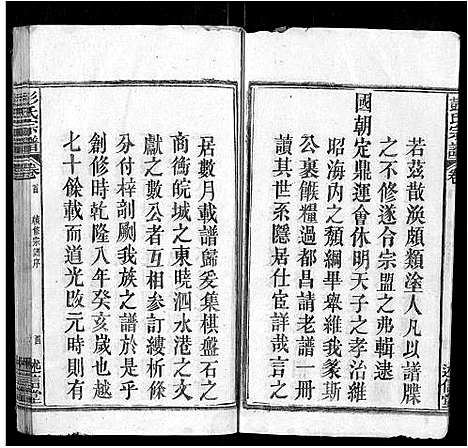 彭氏宗譜
若茲散渙頗類塗人凡以譜牒
之不修遂令宗盟之弗輯逮
國朝定鼎運會休明天子之孝治維
昭海內之頽綱畢舉維我篆斯
公裹餱糧過都昌請老譜一冊
讀其世系隱居仕宦詳哉言之
居數月載譜歸爰集棋盤石之
商衡皖城之東曉泗水港之文
獻之數公者互相參訂縷析條
分付梓剞劂我族之譜於是乎
創修時乾隆八年癸亥歲也嗣
七十餘載而道光改元時則有
彭氏宗譜
卷首
續修宗譜序
首
述信堂